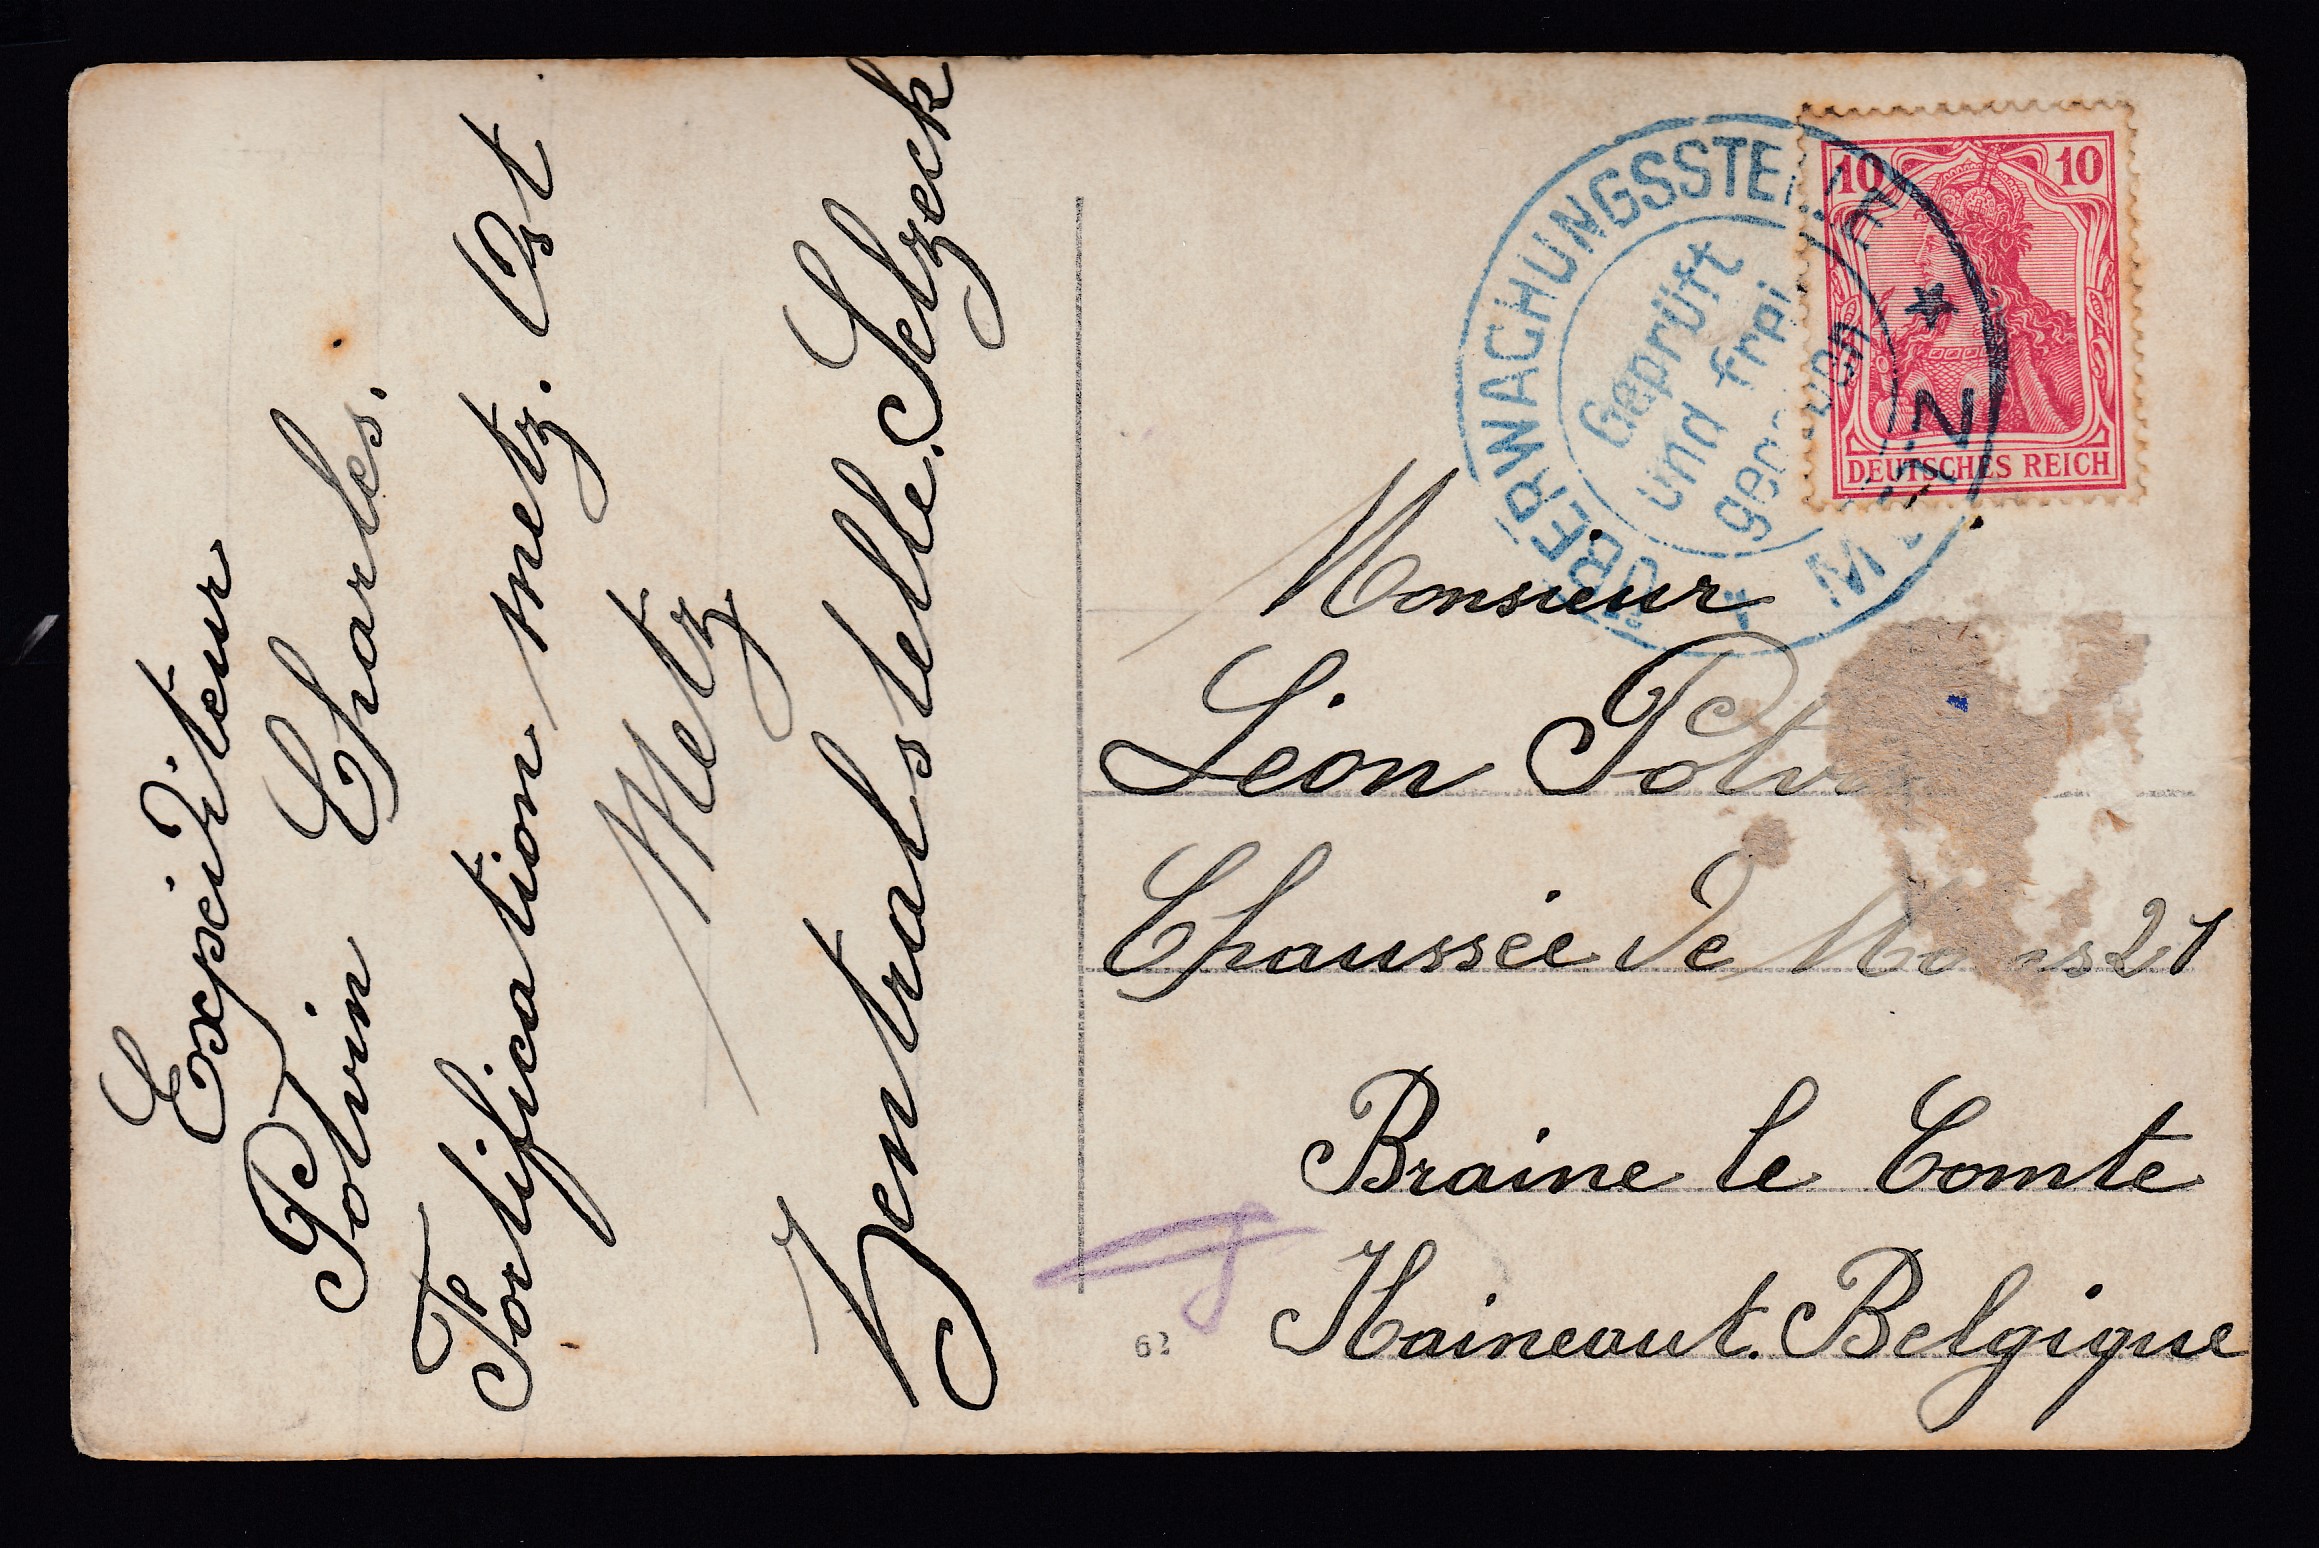 Expéditeur
Potvin Charles.
Fortification Metz. Ost
Metz
Zentralstelle. Selzeck
ÜBERWACHUNGSSTELLE
Geprüft
und frei
10 10
DEUTSCHES REICH
Monsieur
Léon
Chaussée de Mons 21
Braine le Comte
Haineaut. Belgique
62